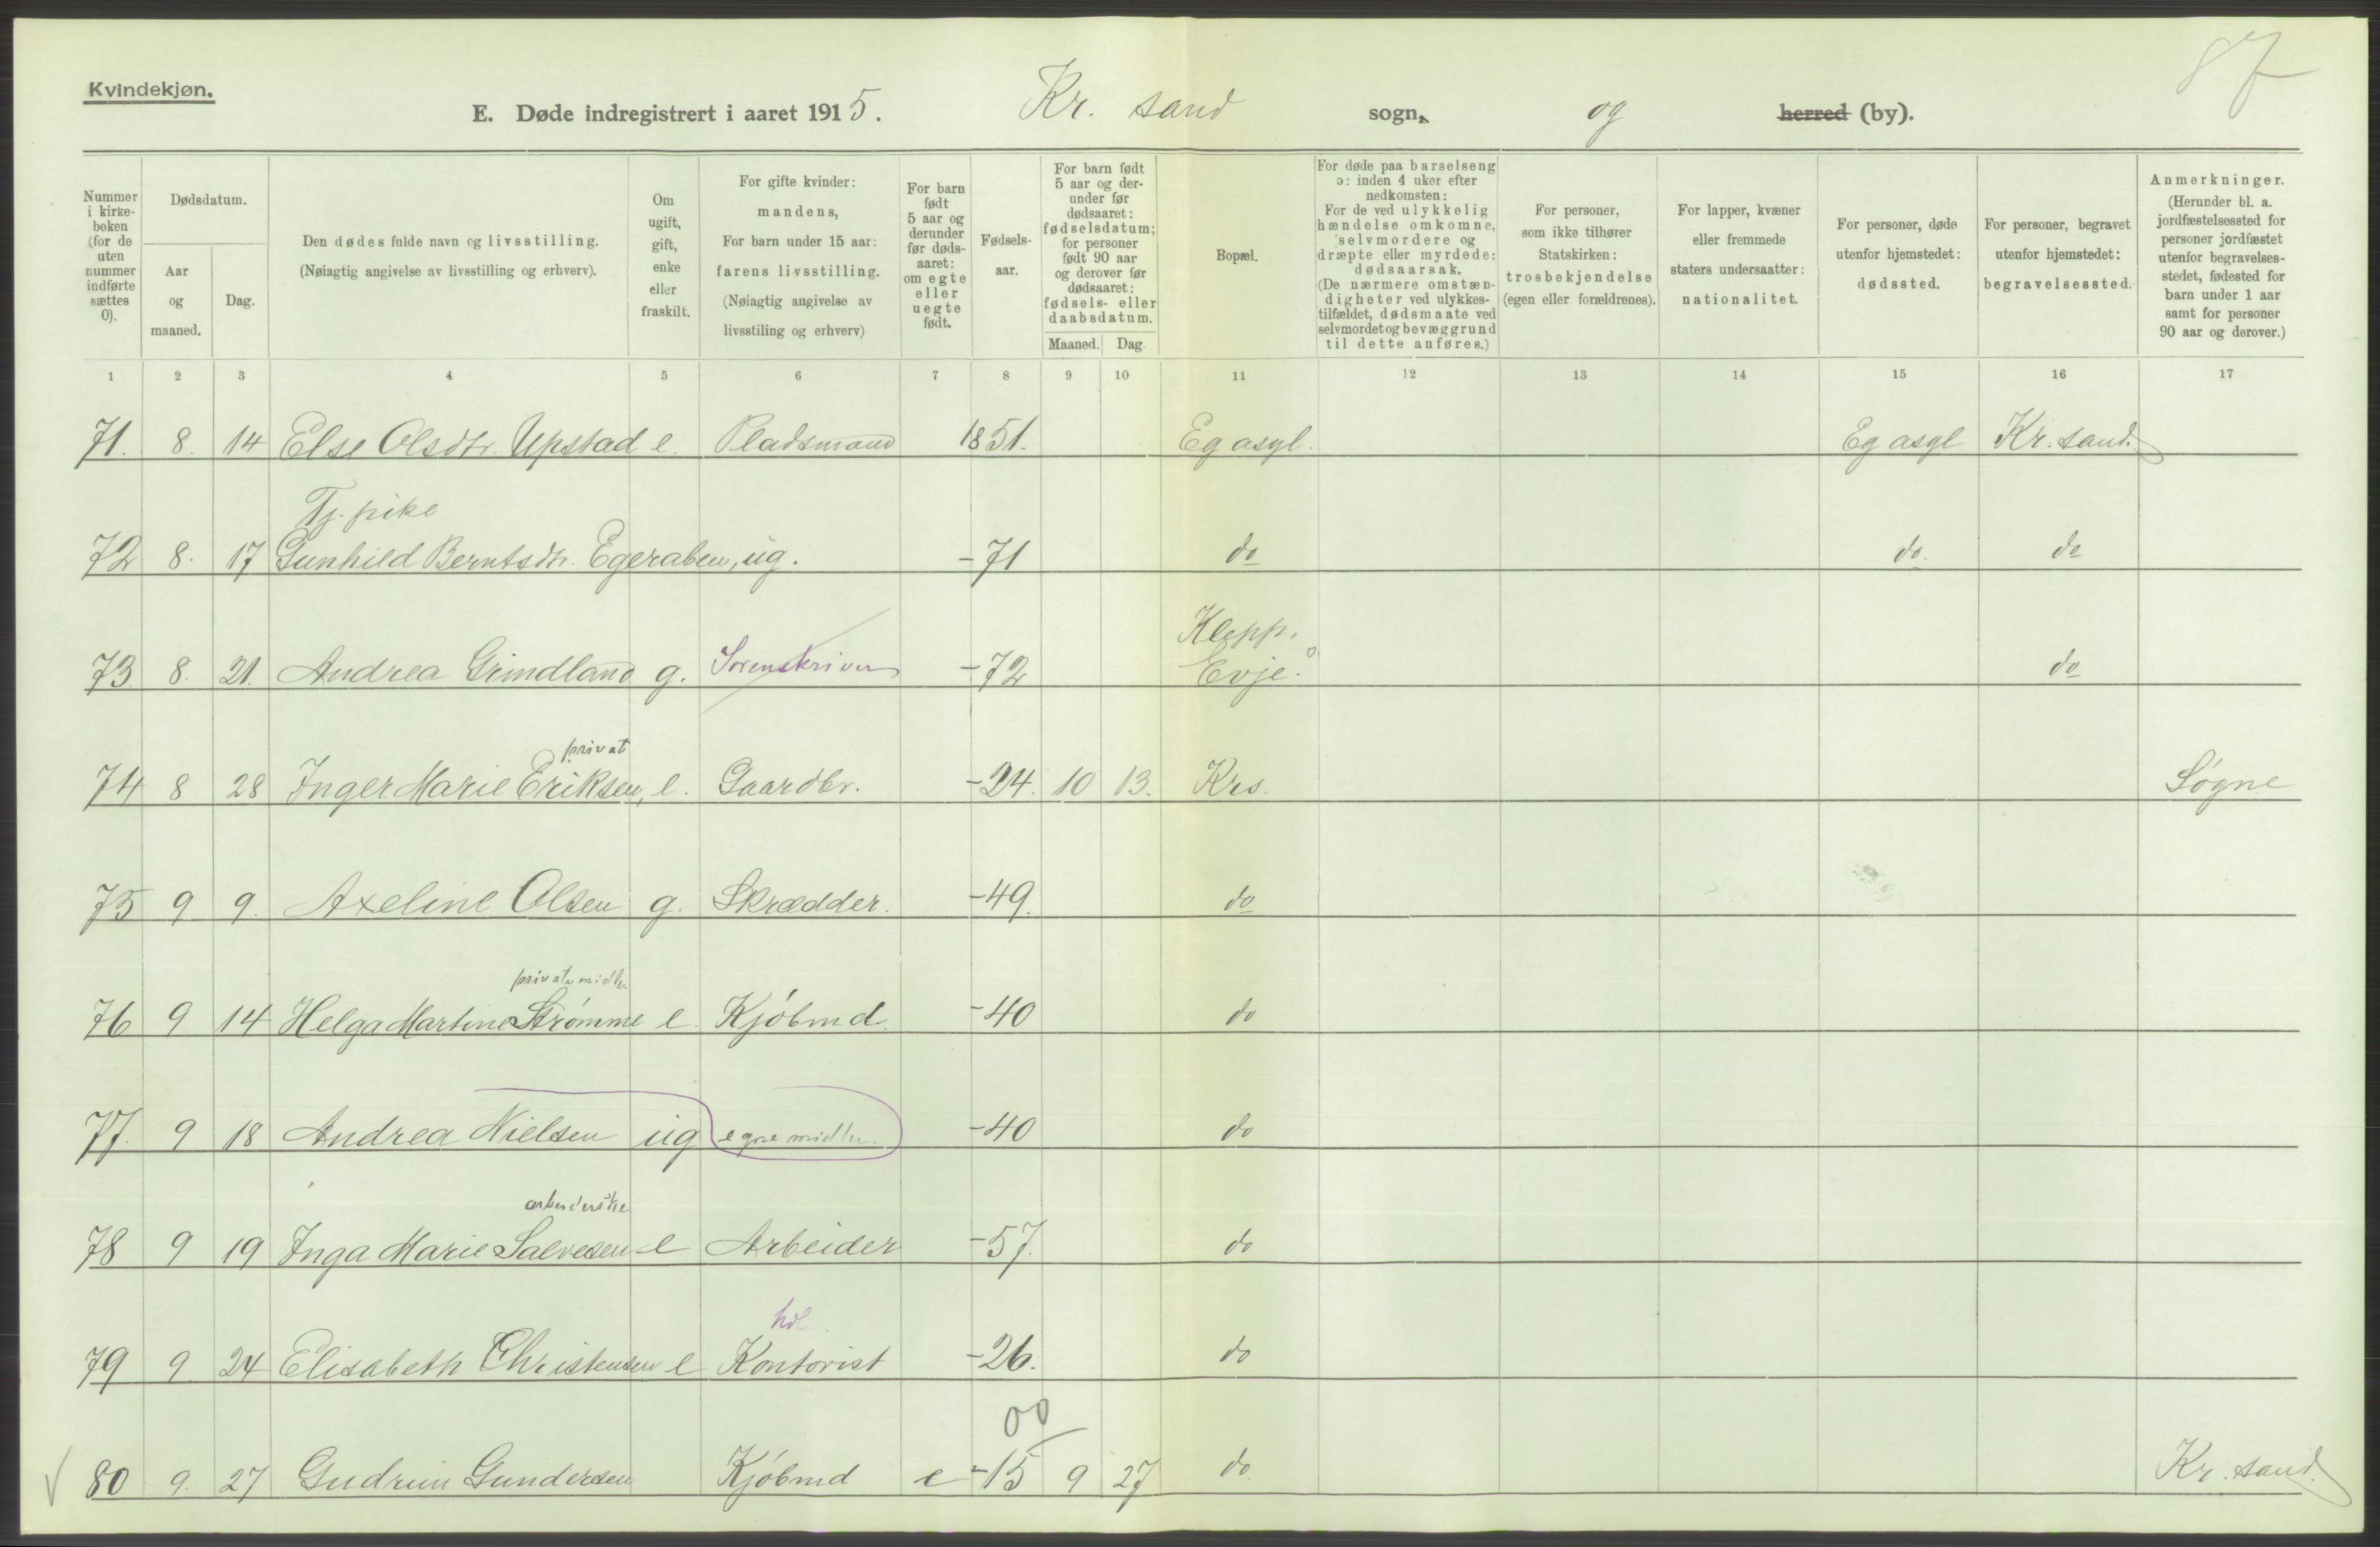 87
Kvindekjøn.
E. Døde indregistrert i aaret 1915. Kr. sand sogn, og herred (by).
Nummer i kirkeboken (for de uten nummer indførte sættes 0).
Dødsdatum.
Aar og maaned.
Dag.
Den dødes fulde navn og livsstilling.
(Nøiagtig angivelse av livsstilling og erhverv).
Om ugift, gift, enke eller fraskilt.
For gifte kvinder: mandens, For barn under 15 aar: farens livsstilling. (Nøiagtig angivelse av livsstiling og erhverv)
For barn født 5 aar og derunder før dødsaaret: om egte eller uegte født.
Fødselsaar.
For barn født 5 aar og derunder før dødsaaret: fødselsdatum; for personer født 90 aar og derover før dødsaaret: fødsels- eller daabsdatum.
Maaned. Dag
Bopæl.
For døde paa barselseng ɔ: inden 4 uker efter nedkomsten: For de ved ulykkelig hændelse omkomne, selvmordere og dræpte eller myrdede: dødsaarsak. (De nærmere omstændigheter ved ulykkestilfældet, dødsmaate ved selvmordet og bevæggrund til dette anføres.)
For personer, som ikke tilhører Statskirken: trosbekjendelse (egen eller forældrenes).
For lapper, kvæner eller fremmede staters undersaatter: nationalitet.
For personer, døde utenfor hjemstedet: dødssted.
For personer, begravet utenfor hjemstedet: begravelsessted.
Anmerkninger. (Herunder bl. a. jordfæstelsessted for personer jordfæstet utenfor begravelsesstedet, fødested for barn under 1 aar samt for personer 90 aar og derover.)
1 2 3 4 5 6 7 8 9 10 11 12 13 14 15 16 17
71. 8. 14 Else Olsdtr. Upstad e. Pladsmand 1851. Eg asyl. Eg asyl Kr. sand.
Tj. pike
72 8. 17 Gunhild Berntsdtr. Egeraben, ug. -71 do do. do
Klepp,
73 8. 21. Andrea Grindland g. Sorenskriver -72 Evje. do
privat
74 8 28 Inger Marie Eriksen, e. Gaardbr. -24. 10 13. Krs. Søgne
75 9 9. Axeline Olsen g. Skrædder. -49. do
private midler
76 9 14 Helga Martine Strømme e. Kjøbmd. -40 do
77. 9 18 Andrea Nielsen ug egne midler. -40 do
arbeiderske
78 9 19 Inga Marie Salvesen e Arbeider -57. do
hdl
79 9. 24 Elisabeth Christensen e Kontorist -26. do
00
80 9. 27 Gudrun Gundersen Kjøbmd e -15 9 27 do. Kr. sand.